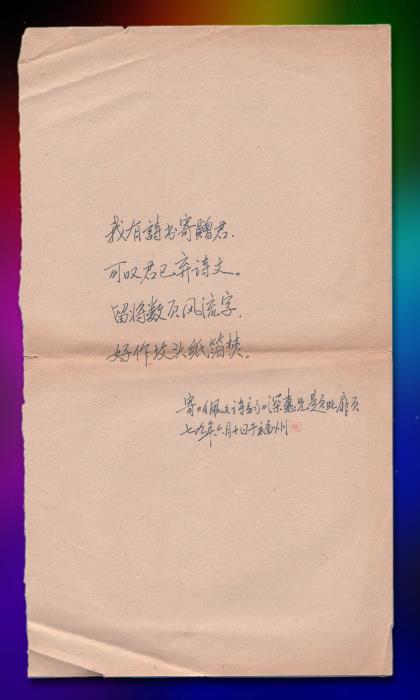 我有詩书寄赠君.
可叹君已弃诗文。
留将数页风流字.
好作坟头纸箔焚。
寄《佩文诗韵》深惠兄题此扉页
七九年六月十日于福州